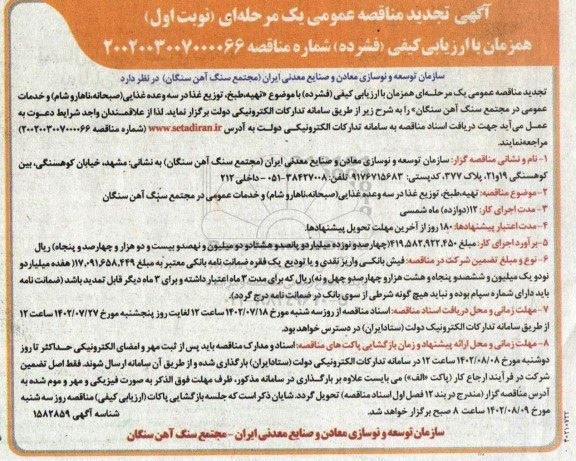 آگهی تجدید مناقصه عمومی یک مرحله‌ای (نوبت اول)
همزمان با ارزیابی کیفی (فشرده) شماره مناقصه ۲۰۰۲۰۰۳۰۰۷۰۰۰۰۶۶
سازمان توسعه و نوسازی معادن و صنایع معدنی ایران (مجتمع سنگ آهن سنگان) در نظر دارد
تجدید مناقصه عمومی یک مرحله‌ای همزمان با ارزیابی کیفی (فشرده) با موضوع «تهیه،طبخ، توزیع غذا در سه وعده غذایی(صبحانه،ناهار و شام) و خدمات
عمومی در مجتمع سنگ آهن سنگان» را به شرح زیر از طریق سامانه تدارکات الکترونیکی دولت برگزار نماید. لذا از علاقمندان واجد شرایط دعوت به
عمل می‌آید جهت دریافت اسناد مناقصه به سامانه تدارکات الکترونیکی دولت به آدرس www.setadiran.ir (شماره مناقصه ۲۰۰۲۰۰۳۰۰۷۰۰۰۰۶۶)
مراجعه‌نمایند.
۱- نام و نشانی مناقصه گزار: سازمان توسعه و نوسازی معادن و صنایع معدنی ایران (مجتمع سنگ آهن سنگان) به نشانی: مشهد، خیابان کوهسنگی، بین
کوهسنگی ۱۹و۲۱، پلاک ۳۷۷، کدپستی: ۹۱۷۶۷۱۵۶۸۳ تلفن: ۳۸۴۲۷۰۰۸-۰۵۱ - داخلی ۲۱۲
۲- موضوع مناقصه: تهیه،طبخ، توزیع غذا در سه وعده غذایی(صبحانه،ناهار و شام) و خدمات عمومی در مجتمع سنگ آهن سنگان
۳- مدت اجرای کار: ۱۲(دوازده) ماه شمسی
۴- مدت اعتبار پیشنهادها: ۱۸۰ روز از آخرین مهلت تحویل پیشنهادها.
۵- برآورد اجرای کار: مبلغ ۴۱۹,۵۸۲,۹۲۲,۴۵۰(چهارصد و نوزده میلیارد و پانصد و هشتاد و دو میلیون و نهصد و بیست و دو هزار و چهارصد و پنجاه) ریال
۶- نوع و مبلغ تضمین شرکت در مناقصه: فیش بانکی واریز نقدی و یا تودیع یک فقره ضمانت نامه بانکی معتبر به مبلغ ۱۷,۰۹۱,۶۵۸,۴۴۹( هفده میلیارد و
نود و یک میلیون و ششصد و پنجاه و هشت هزار و چهارصد و چهل و نه) ریال که برای مدت ۳ ماه اعتبار داشته و برای ۳ ماه دیگر قابل تمدید باشد (ضمانت نامه
باید دارای شماره سپام بوده و نباید هیچ گونه شرطی از سوی بانک در ضمانت نامه درج گردد).
۷- مهلت زمانی و محل دریافت اسناد مناقصه: اسناد مناقصه از روز سه شنبه مورخ ۱۴۰۲/۰۷/۱۸ ساعت ۱۲ لغایت روز پنجشنبه مورخ ۱۴۰۲/۰۷/۲۷ ساعت ۱۲
از طریق سامانه تدارکات الکترونیک دولت (ستادایران) در دسترس خواهد بود.
۸- مهلت زمانی و محل ارائه پیشنهاد و زمان بازگشایی پاکت های مناقصه: اسناد و مدارک مناقصه باید پس از ثبت مهر و امضای الکترونیکی حداکثر تا روز
دوشنبه مورخ ۱۴۰۲/۰۸/۰۸ ساعت ۱۲ در سامانه تدارکات الکترونیکی دولت (ستادایران) بارگذاری شده و از طریق آن سامانه ارسال شوند. فقط اصل تضمین
شرکت در فرآیند ارجاع کار (پاکت «الف») می بایست علاوه بر بارگذاری در سامانه مذکور، ظرف مهلت فوق الذکر به صورت فیزیکی و مهر و موم شده به
آدرس مناقصه گزار (مندرج در بند ۱۲ فصل اول اسناد مناقصه) تحویل گردد. شایان ذکر است که جلسه بازگشایی پاکات (ارزیابی کیفی) مناقصه روز سه شنبه
مورخ ۱۴۰۲/۰۸/۰۹ ساعت ۸ صبح برگزار خواهد شد. شناسه آگهی ۱۵۸۲۸۵۹
سازمان توسعه و نوسازی معادن و صنایع معدنی ایران - مجتمع سنگ آهن سنگان